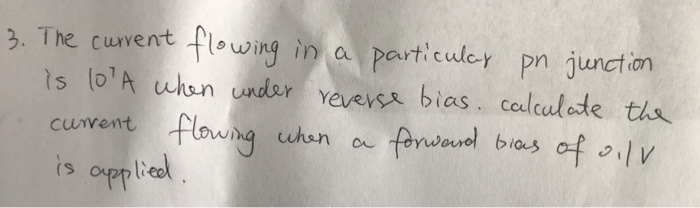 3. The current flowing in a particular pn junction
is 10⁷A when under reverse bias. calculate the
current flowing when a forward bias of 0.1V
is applied.